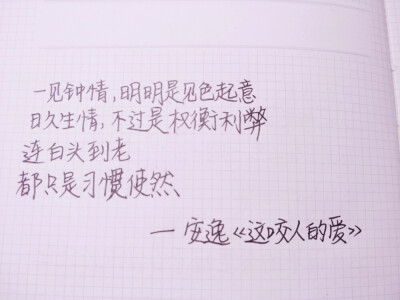 一见钟情,明明是见色起意
日久生情,不过是权衡利弊
连白头到老
都只是习惯使然
— 安逸《这咬人的爱》